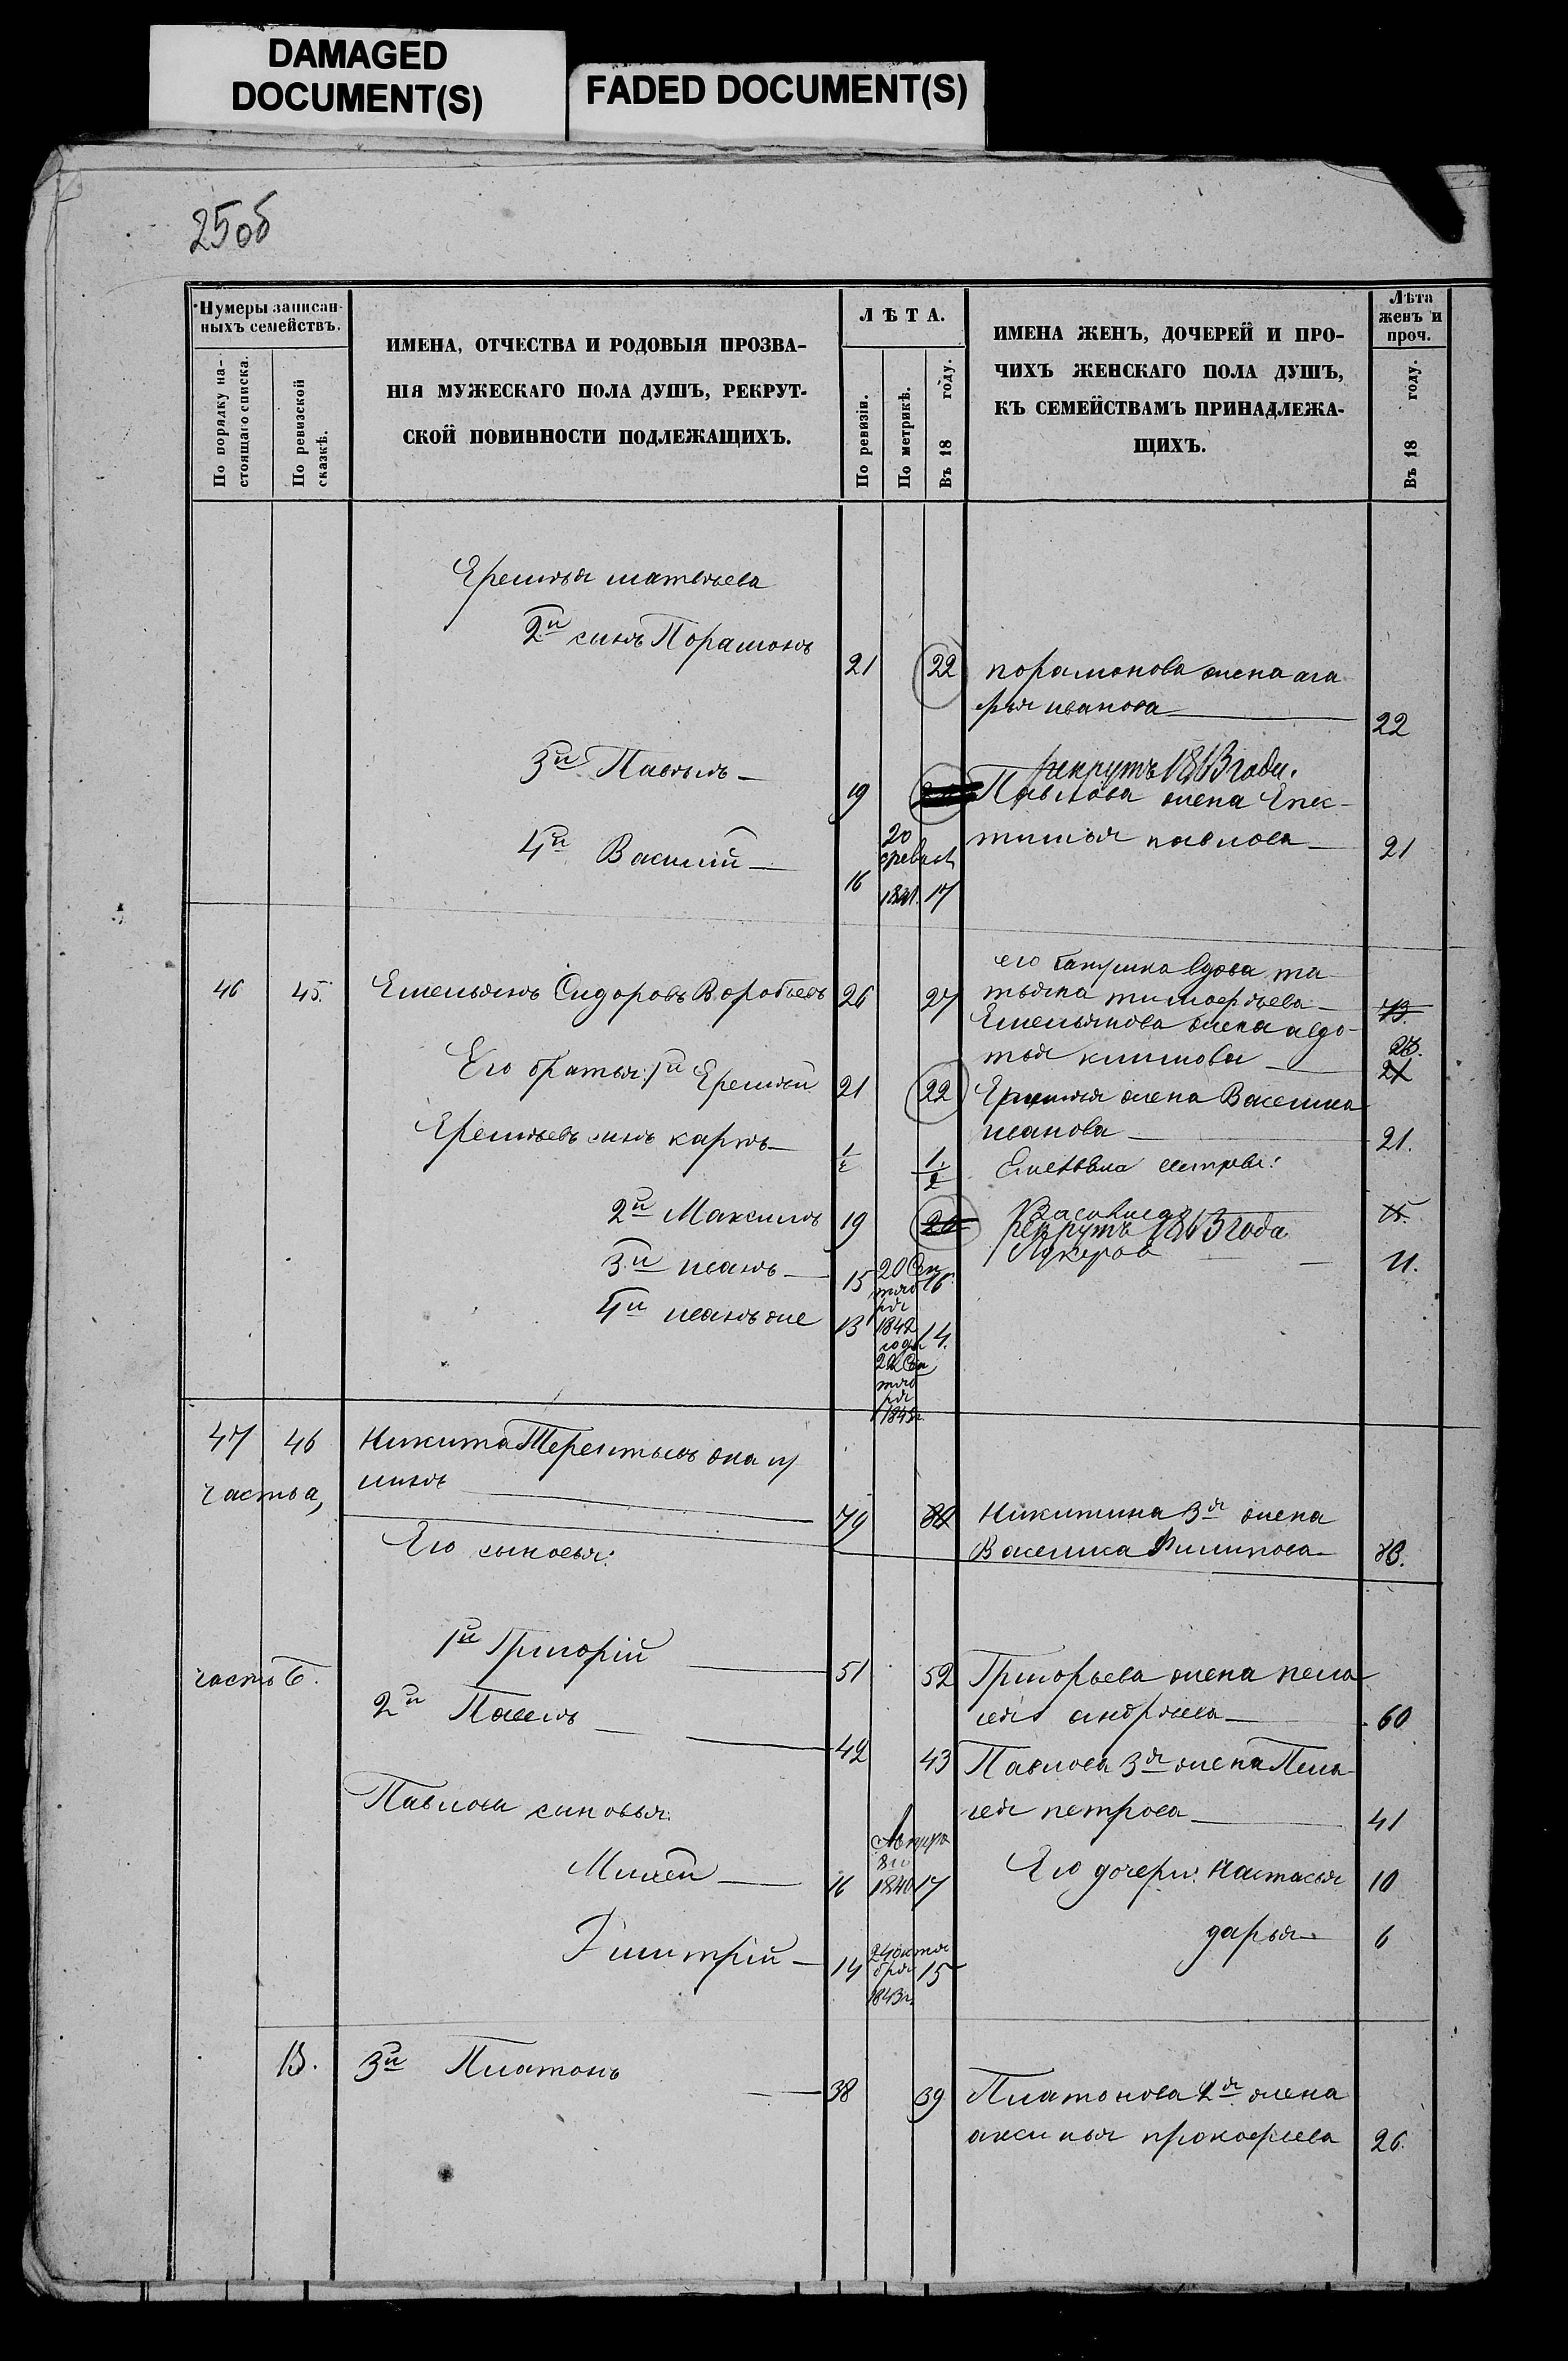 DAMAGED
DOCUMENT(S)
FADED DOCUMENT(S)
25об
Нумеры записан-
ныхъ семействъ.
По порядку на-
стоящаго списка.
По ревизской
сказкѣ.
ИМЕНА, ОТЧЕСТВА И РОДОВЫЯ ПРОЗВА-
НІЯ МУЖЕСКАГО ПОЛА ДУШЪ, РЕКРУТ-
СКОЙ ПОВИННОСТИ ПОДЛЕЖАЩИХЪ.
ЛѢТА.
По ревизіи.
По метрикѣ.
Въ 18 году.
ИМЕНА ЖЕНЪ, ДОЧЕРЕЙ И ПРО-
ЧИХЪ ЖЕНСКАГО ПОЛА ДУШЪ,
КЪ СЕМЕЙСТВАМЪ ПРИНАДЛЕЖА-
ЩИХЪ.
Лѣта
женъ и
проч.
Въ 18 году.
Еремѣя матвѣева
2й сынъ Порамонъ 21 22
порамонова жена ага
фья иванова 22
3й Павелъ 19
рекрутъ 1863 года.
Павлова жена Епес-
тимья павлова 21
4й Василій 16 20 февраля 1841. 17
46 45. Емельянъ Сидоровъ Воробьевъ 26 27
его бапушка вдова та
тьяна тимофѣева
Емельянова жена авдо-
тья климова
Его братья: 1й Еремѣй 21 22
Еремѣя жена Васелиса
иванова 21.
Еремѣевъ сынъ карпъ 1/2 1/2
сестры:
2й Максимъ 19 20
рекрутъ 1863 года
3й иванъ 15 20 Сентября 1842 года 16
11.
4й иванъ же 13 22 Сентября 14.
47 46 Никита Терентьевъ
часть а,
79
Никитина 3я жена
Василиса Филипова
Его сыновья:
часть б.
1й Григорій 51 52
Григорьева жена пела
гея андреева 60
2й Павелъ 42 43
Павлова 3я жена Пела
гея петрова 41
Павлова сыновья:
Михей 16 1840 17
Его дочери: Настасья 10
Дмитрій 14 24 октября 1843г. 15
дарья 6
В. 3й Платонъ 38 39
Платонова 2я жена
аксинья прокофиева 26.